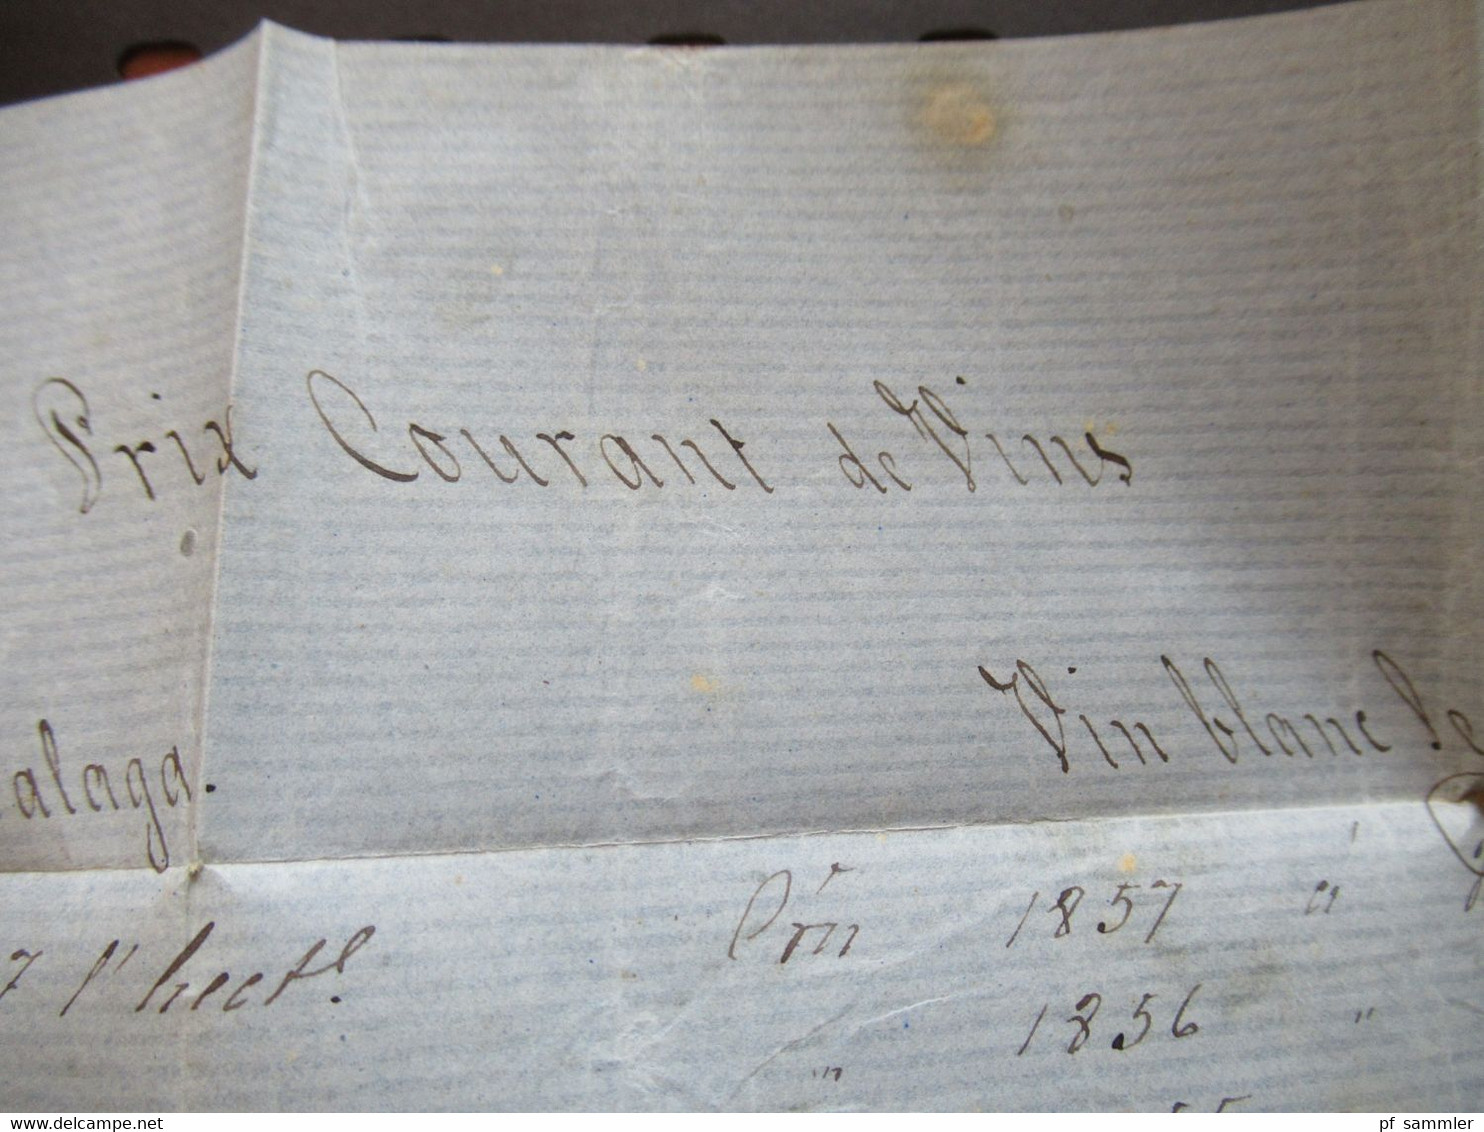 Prix Courant de Vins
alaga. Vin blanc de
7 l'hectl. 1857 à
1856 "
"
delcampe.net
pf_sammler